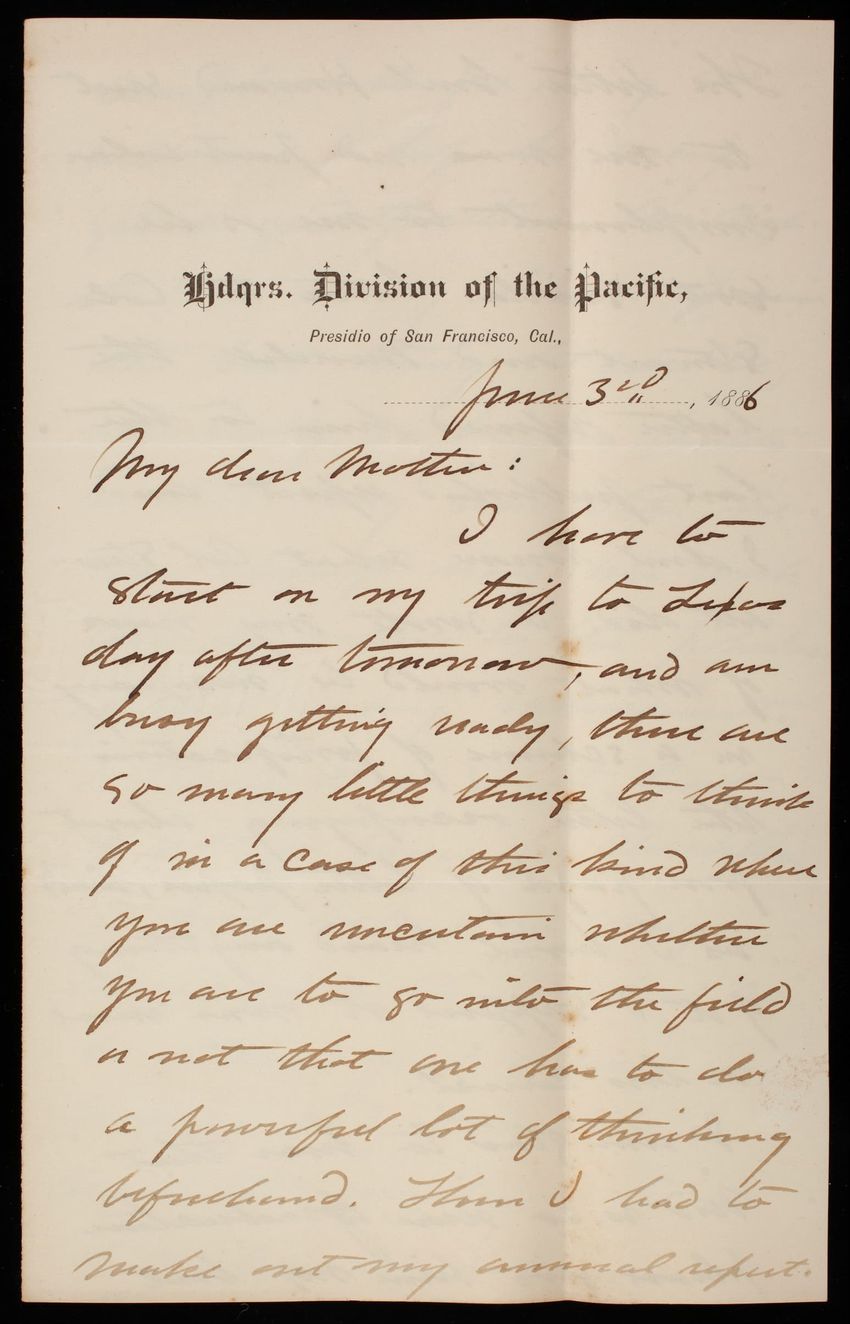 Hdqrs. Division of the Pacific,
Presidio of San Francisco, Cal.,
June 3rd, 1886
My dear Mother:
I have to
start on my trip to Texas
day after tomorrow, and am
busy getting ready, there are
so many little things to think
of in a case of this kind where
you are uncertain whether
you are to go into the field
or not that one has to do
a powerful lot of thinking
beforehand. Then I had to
make out my annual report.